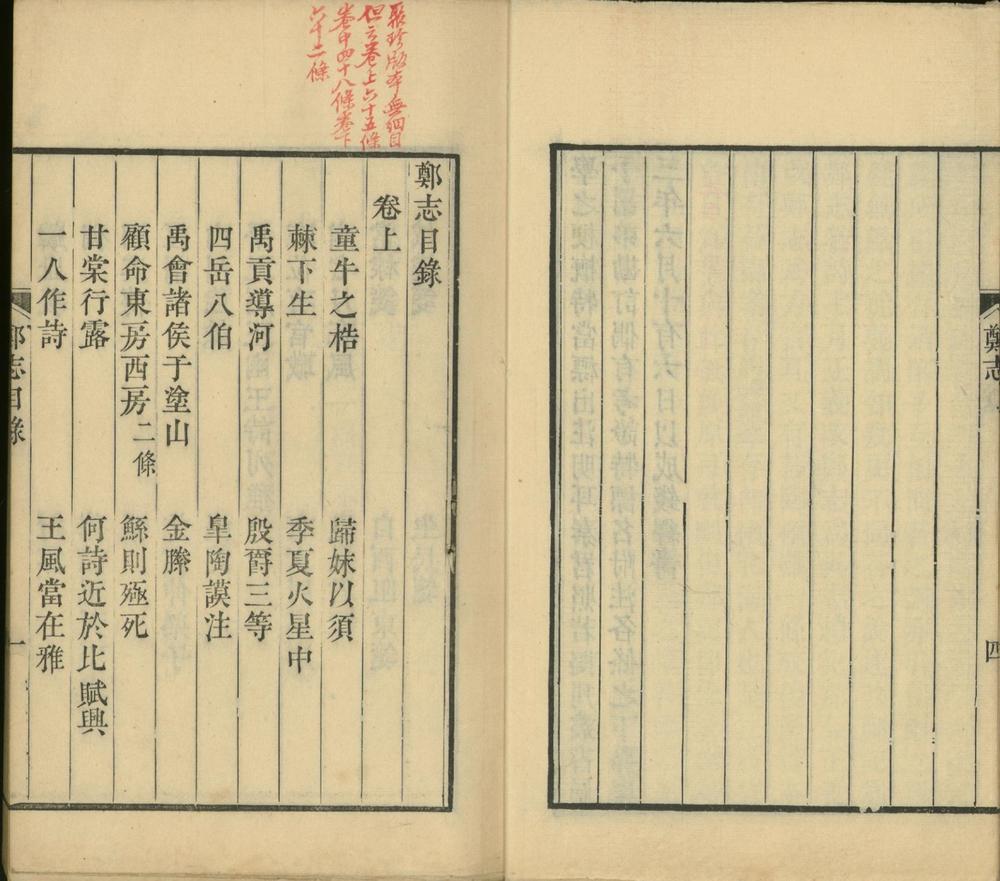 鄭志
四
聚珍版本無細目
但云卷上六十五條
卷中四十八條卷下
六十二條
鄭志目錄
卷上
童牛之梏 歸妹以須
棘下生 季夏火星中
禹貢導河 殷爵三等
四岳八伯 皐陶謨注
禹會諸侯于塗山 金縢
顧命東房西房二條 鯀則殛死
甘棠行露 何詩近於比賦興
一人作詩 王風當在雅
鄭志目錄
一